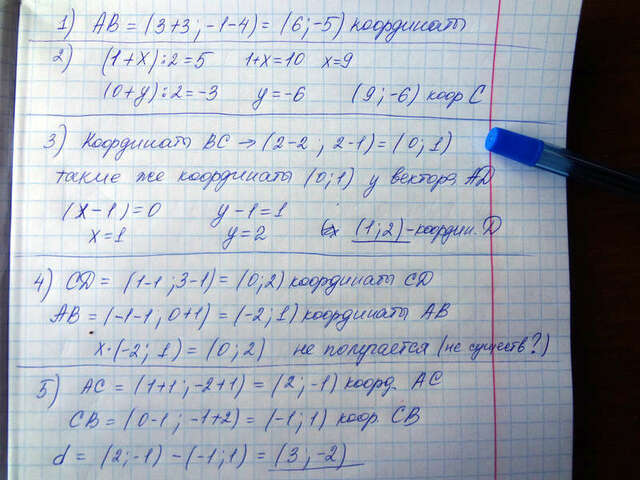 1) AB = (3+3; -1-4) = (6; -5) координаты
2) (1+x):2=5 1+x=10 x=9
(0+y):2=-3 y=-6 (9; -6) коор C
3) Координаты BC → (2-2; 2-1) = (0; 1)
такие же координаты (0;1) у вектора AD
(x-1)=0 y-1=1
x=1 y=2 (1;2)-координ. D
4) CD = (1-1; 3-1) = (0; 2) координаты CD
AB = (-1-1; 0+1) = (-2; 1) координаты AB
x·(-2; 1) = (0; 2) не получается (не существ?)
5) AC = (1+1; -2+1) = (2; -1) коорд. AC
CB = (0-1; -1+2) = (-1; 1) коор. CB
d = (2;-1) - (-1;1) = (3; -2)